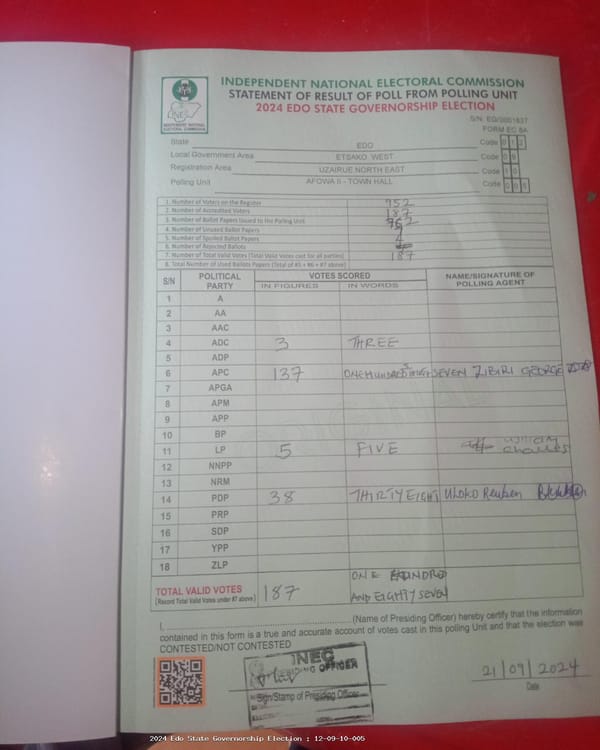 INDEPENDENT NATIONAL ELECTORAL COMMISSION
STATEMENT OF RESULT OF POLL FROM POLLING UNIT
2024 EDO STATE GOVERNORSHIP ELECTION
INEC
INDEPENDENT NATIONAL ELECTORAL COMMISSION
S/N: ED/0001637
FORM EC 8A
State EDO Code 0 1 2
Local Government Area ETSAKO WEST Code 0 9
Registration Area UZAIRUE NORTH EAST Code 1 0
Polling Unit AFOWA II - TOWN HALL Code 0 0 5
1. Number of Voters on the Register 952
2. Number of Accredited Voters 187
3. Number of Ballot Papers Issued to the Polling Unit 952
4. Number of Unused Ballot Papers
5. Number of Spoiled Ballot Papers
6. Number of Rejected Ballots
7. Number of Total Valid Votes (Total Valid Votes cast for all parties) 187
8. Total Number of Used Ballots Papers (Total of #5 + #6 + #7 above)
S/N POLITICAL PARTY VOTES SCORED NAME/SIGNATURE OF POLLING AGENT
IN FIGURES IN WORDS
1 A
2 AA
3 AAC
4 ADC 3 THREE
5 ADP
6 APC 137 SEVEN ZIBIRI GEORGE
7 APGA
8 APM
9 APP
10 BP
11 LP 5 FIVE Charles
12 NNPP
13 NRM
14 PDP 38 THIRTY EIGHT Reuben
15 PRP
16 SDP
17 YPP
18 ZLP
TOTAL VALID VOTES 187 ONE HUNDRED AND EIGHTY SEVEN
(Record Total Valid Votes under #7 above)
I, (Name of Presiding Officer) hereby certify that the information
contained in this form is a true and accurate account of votes cast in this polling Unit and that the election was
CONTESTED/NOT CONTESTED
INEC
PRESIDING OFFICER
Sign/Stamp of Presiding Officer
21/09/2024
Date
2024 Edo State Governorship Election : 12-09-10-005